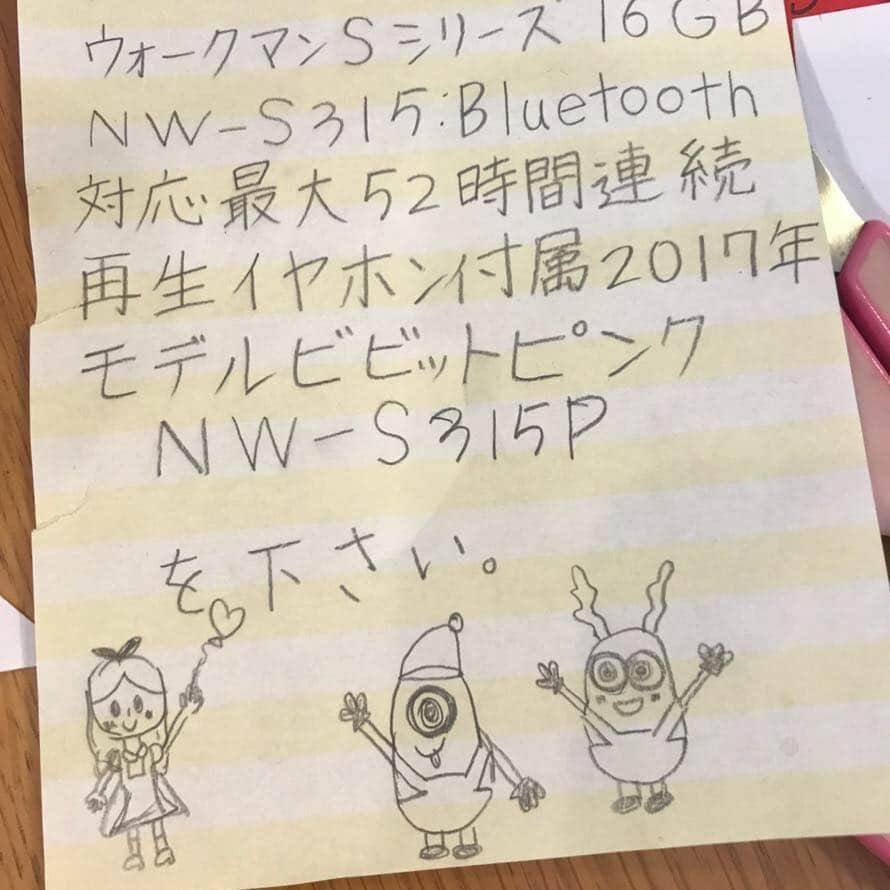 ウォークマンSシリーズ 16GB
NW-S315:Bluetooth
対応最大52時間連続
再生イヤホン付属2017年
モデルビビットピンク
NW-S315P
を下さい。